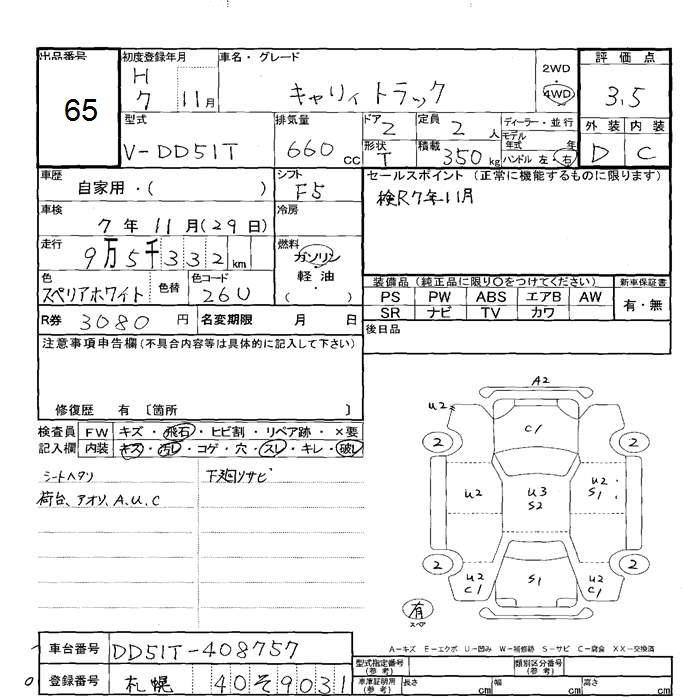 出品番号
65
初度登録年月
H
7 11月
車名・グレード
キャリィトラック
2WD
・
4WD
評価点
3.5
外装 内装
D C
型式
V-DD51T
排気量
660 CC
ドア
2
定員
2 人
形状
T
積載
350 kg
ディーラー・並行
モデル
年式 年
ハンドル 左・右
車歴
自家用・( )
シフト
F5
セールスポイント (正常に機能するものに限ります)
検R7年11月
車検
7年11月(29日)
冷房
走行
9万5千332km
燃料
ガソリン
・
軽油
( )
色
スペリアホワイト
色替
色コード
26U
装備品(純正品に限り○をつけてください)
新車保証書
PS PW ABS エアB AW
SR ナビ TV カワ
有・無
R券 3080 円
名変期限 月 日
後日品
注意事項申告欄(不具合内容等は具体的に記入して下さい)
修復歴 有 〔箇所 〕
検査員
記入欄
FW キズ・飛石・ヒビ割・リペア跡・×要
内装 キズ・汚レ・コゲ・穴・スレ・キレ・破レ
シートヘタリ
荷台、アオリ、A.U.C
下廻りサビ
A2
U2
C1
2 2
U2
U3
S2
U2
S1
2 2
U2
C1
S1
U2
C1
有
スペア
A=キズ E=エクボ U=凹み W=補修跡 S=サビ C=腐食 XX=交換済
車台番号 DD51T-408757
登録番号 札幌 40 そ 9031
型式指定番号
(参考)
類別区分番号
(参考)
車庫証明用
(参考)
長さ cm
幅 cm
高さ cm